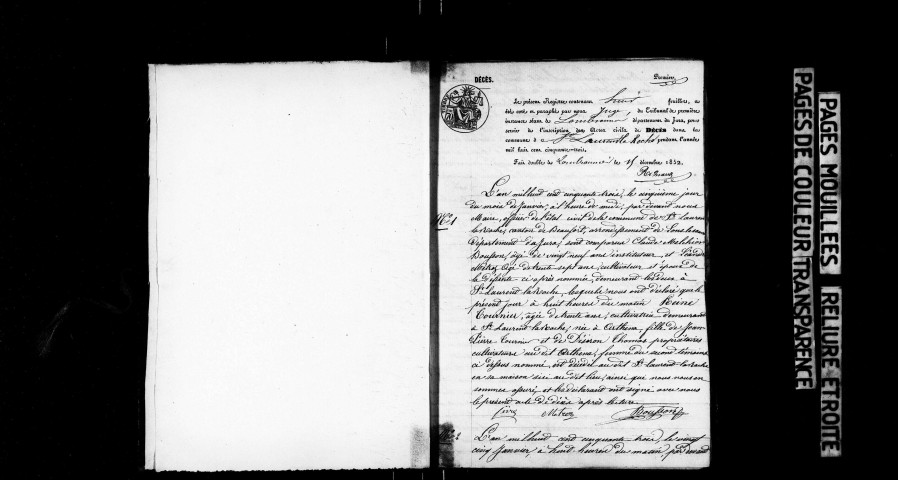 DÉCÈS.
Premier
Le présent Registre contenant huit feuillets, a
été coté et paraphé par nous Juge, du Tribunal de première
instance séant à département du Jura, pour
servir à l'inscription des Actes civils de DÉCÈS dans la
commune de St Laurent la Roche pendant l'année
mil huit cent cinquante-trois.
Fait double le 15 décembre 1852.
N° 1
L'an mil huit cent cinquante trois, le cinquième jour
du mois de Janvier, à l'heure de midi, par devant nous
Maire, officier de l'état civil de la commune de St Laurent
la Roche, canton de Beaufort, arrondissement de
Département du Jura, sont comparus Claude Melchior
Bouffon, âgé de vingt neuf ans instituteur, et
Métroz âgé de trente sept ans, cultivateur et époux de
la défunte ci après nommée, demeurant tous deux à
St Laurent la Roche, lesquels nous ont déclaré que le
présent jour à huit heures du matin Reine
Tournier, âgée de trente ans, cultivatrice demeurant
à St Laurent la Roche, née à Arthena, fille de Jean
Pierre Tournier et de Thomas propriétaires
cultivateurs au dit Arthena, femme du second témoin
ci dessus nommé, est décédée au dit St Laurent la Roche
en sa maison sise au dit lieu, ainsi que nous nous en
sommes assuré, et les déclarants ont signé avec nous
le présent acte de décès après lecture.
Métroz Bouffon
N° 2
L'an mil huit cent cinquante trois, le vingt
cinq Janvier, à huit heures du matin, par devant
PAGES MOUILLEES RELIURE ETROITE
PAGES DE COULEUR TRANSPARENCE